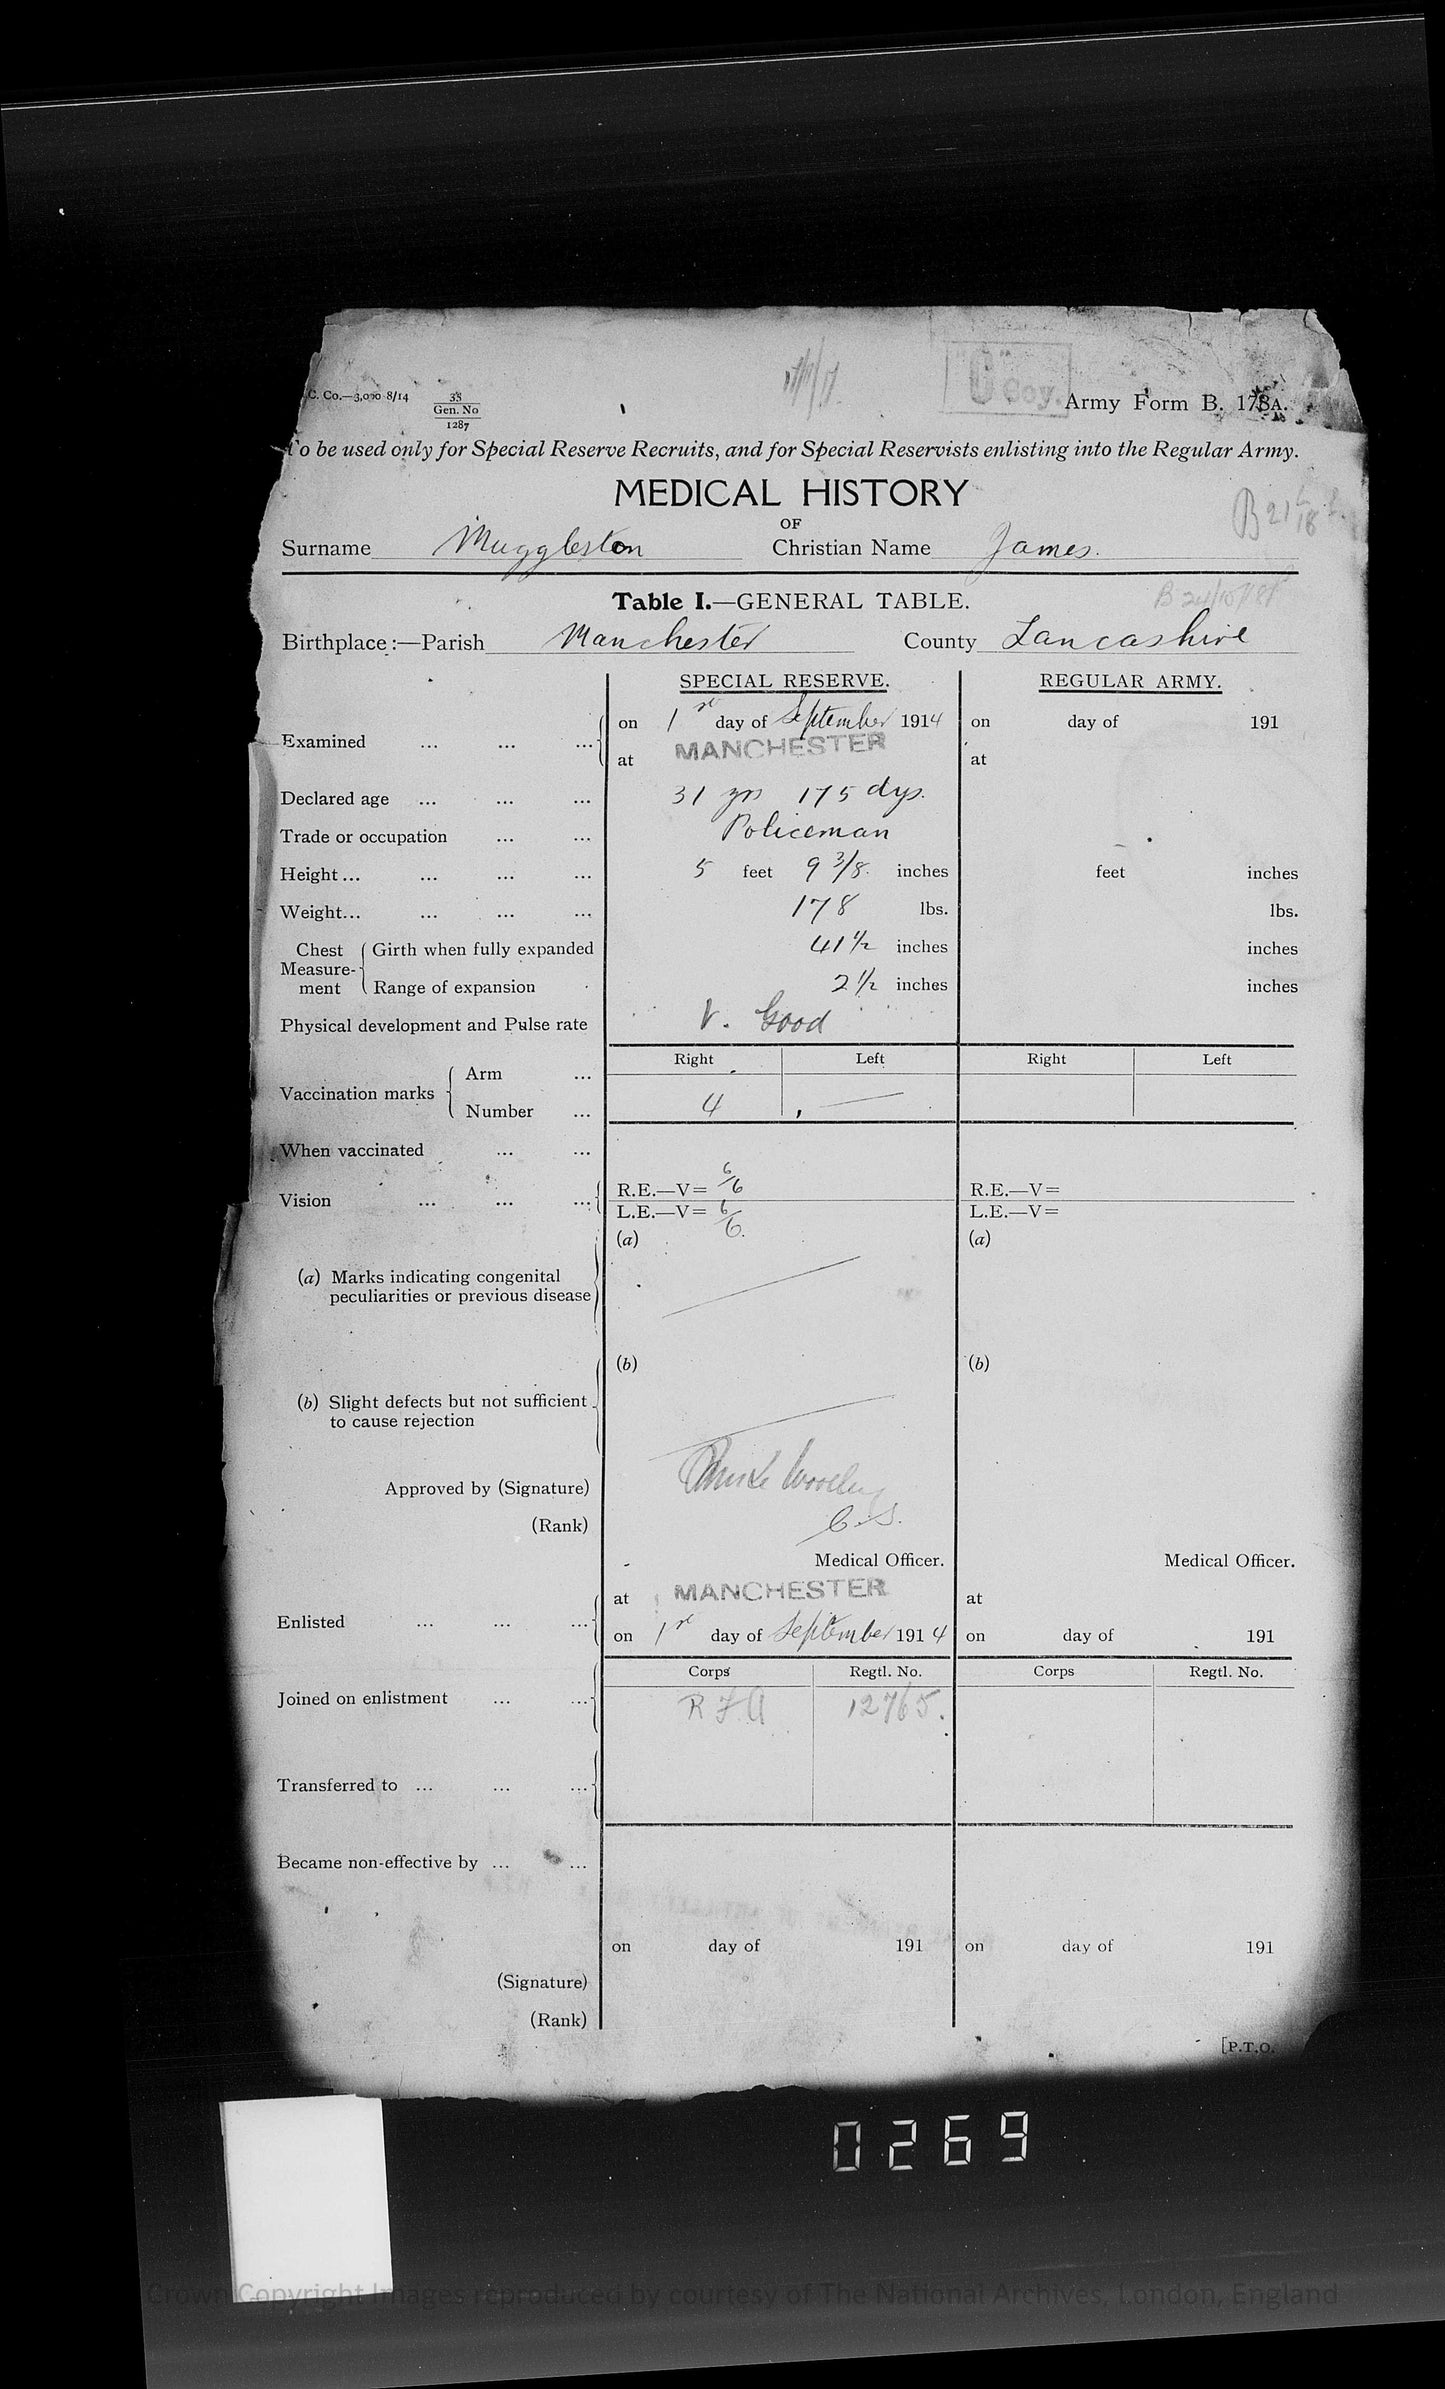 C. Co.—3,000 8/14 38
Gen. No
1287
"C" Coy.
Army Form B. 178A.
To be used only for Special Reserve Recruits, and for Special Reservists enlisting into the Regular Army.
MEDICAL HISTORY
OF
Surname Muggleston Christian Name James.
Table I.—GENERAL TABLE.
Birthplace:—Parish Manchester County Lancashire
SPECIAL RESERVE. REGULAR ARMY.
Examined ... ... ... on 1st day of September 1914 on day of 191
at MANCHESTER at
Declared age ... ... ... 31 yrs 175 dys.
Trade or occupation ... ... Policeman
Height ... ... ... ... 5 feet 9 3/8 inches feet inches
Weight... ... ... ... 178 lbs. lbs.
Chest Measure-ment Girth when fully expanded 41 1/2 inches inches
Range of expansion 2 1/2 inches inches
Physical development and Pulse rate V. Good
Right Left Right Left
Vaccination marks Arm ...
Number ... 4 —
When vaccinated ... ...
Vision ... ... ... R.E.—V= 6/6 R.E.—V=
L.E.—V= 6/6. L.E.—V=
(a) (a)
(a) Marks indicating congenital
peculiarities or previous disease
(b) (b)
(b) Slight defects but not sufficient
to cause rejection
Approved by (Signature)
(Rank) C.S.
Medical Officer. Medical Officer.
Enlisted ... ... ... at MANCHESTER at
on 1st day of September 1914 on day of 191
Corps Regtl. No. Corps Regtl. No.
Joined on enlistment ... ... R F A 12765.
Transferred to ... ... ...
Became non-effective by ... ...
on day of 191 on day of 191
(Signature)
(Rank)
[P.T.O.
0269
Crown Copyright Images reproduced by courtesy of The National Archives, London, England